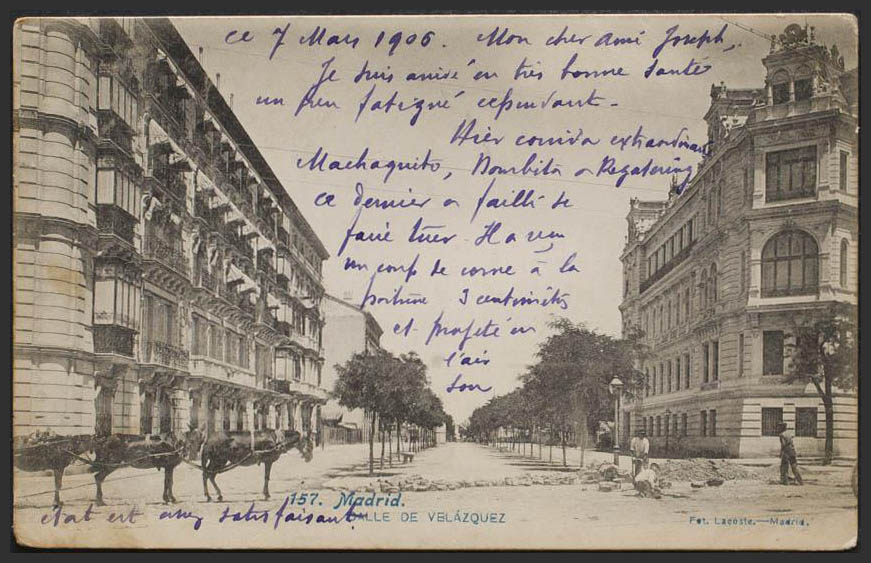 ce 7 Mars 1906. Mon cher ami Joseph,
Je suis arrivé en très bonne santé
un peu fatigué cependant -
Hier corrida extraordinaire
Machaquito, Bombita et Regaterin
ce dernier a failli se
faire tuer - Ha reçu
un coup de corne à la
poitrine 3 centimètres
et projeté en
l'air
son
état est assez satisfaisant.
157. Madrid.
CALLE DE VELÁZQUEZ
Fot. Lacoste.—Madrid.